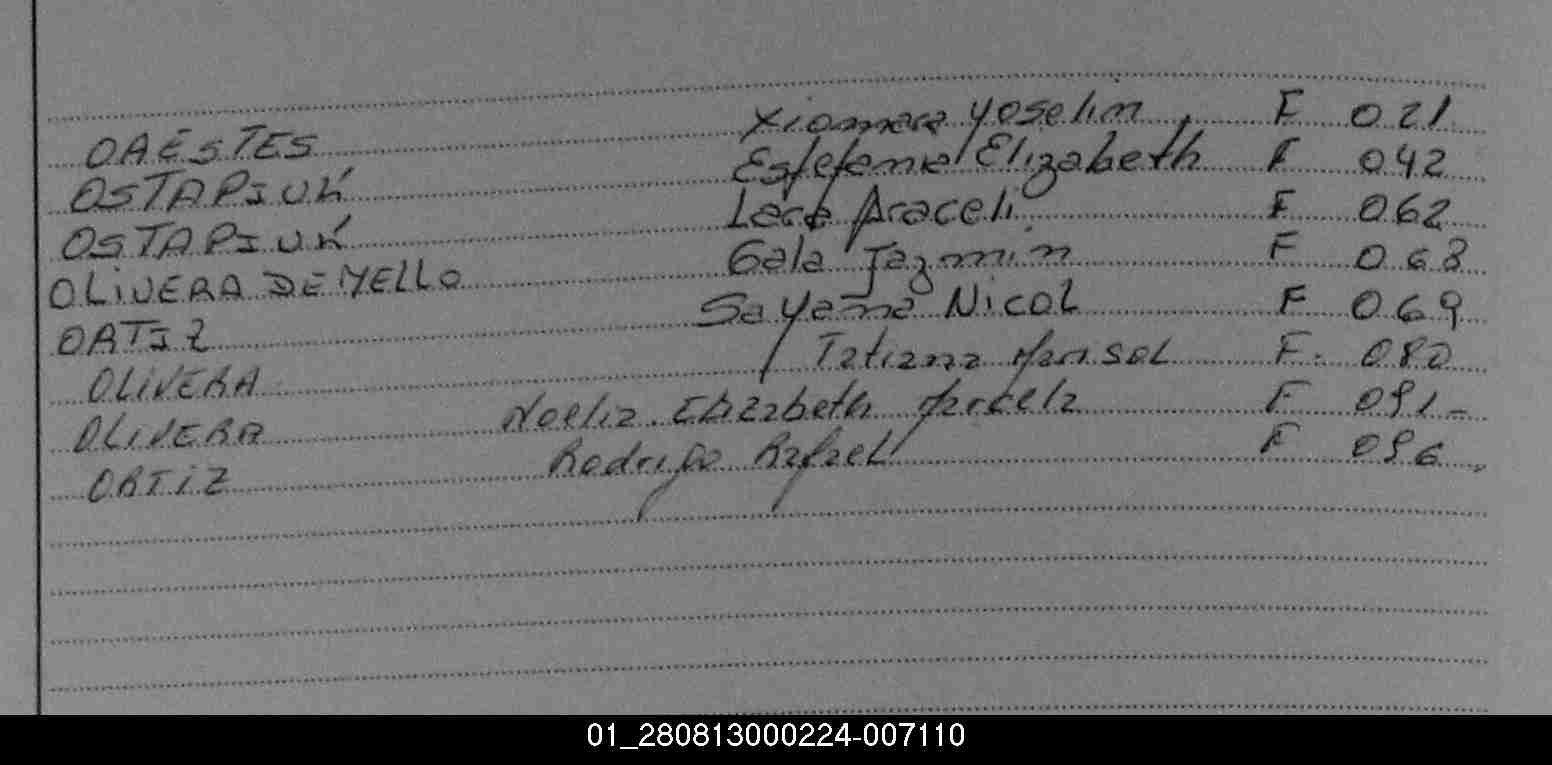 ORESTES Xiomara Yoselin F 021
OSTAPIUK Estefania Elizabeth F 042
OSTAPIUK Lara Araceli F 062
OLIVERA DE MELLO Gala Jazmin F 068
ORTIZ Nicol F 069
OLIVERA Tatiana Marisol F. 080
OLIVERA Noelia Elizabeth Marcela F 091-
ORTIZ Rodrigo Rafael F 096
01_280813000224-007110